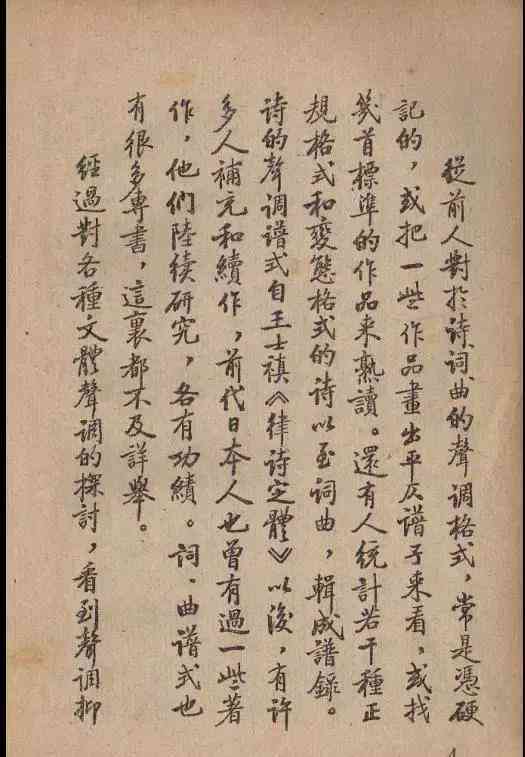 從前人對於诗詞曲的聲调格式，常是憑硬
記的，或把一些作品畫出平仄谱子来看，或找
幾首標準的作品来熟讀。還有人统計若干種正
規格式和變態格式的诗以至词曲，輯成譜錄。
诗的聲调谱式自王士禛《律诗定體》以後，有许
多人補充和續作，前代日本人也曾有過一些著
作，他們陸续研究，各有功績。詞、曲谱式也
有很多專書，這裏都不及詳舉。
經過對各種文體聲调的探討，看到聲调抑